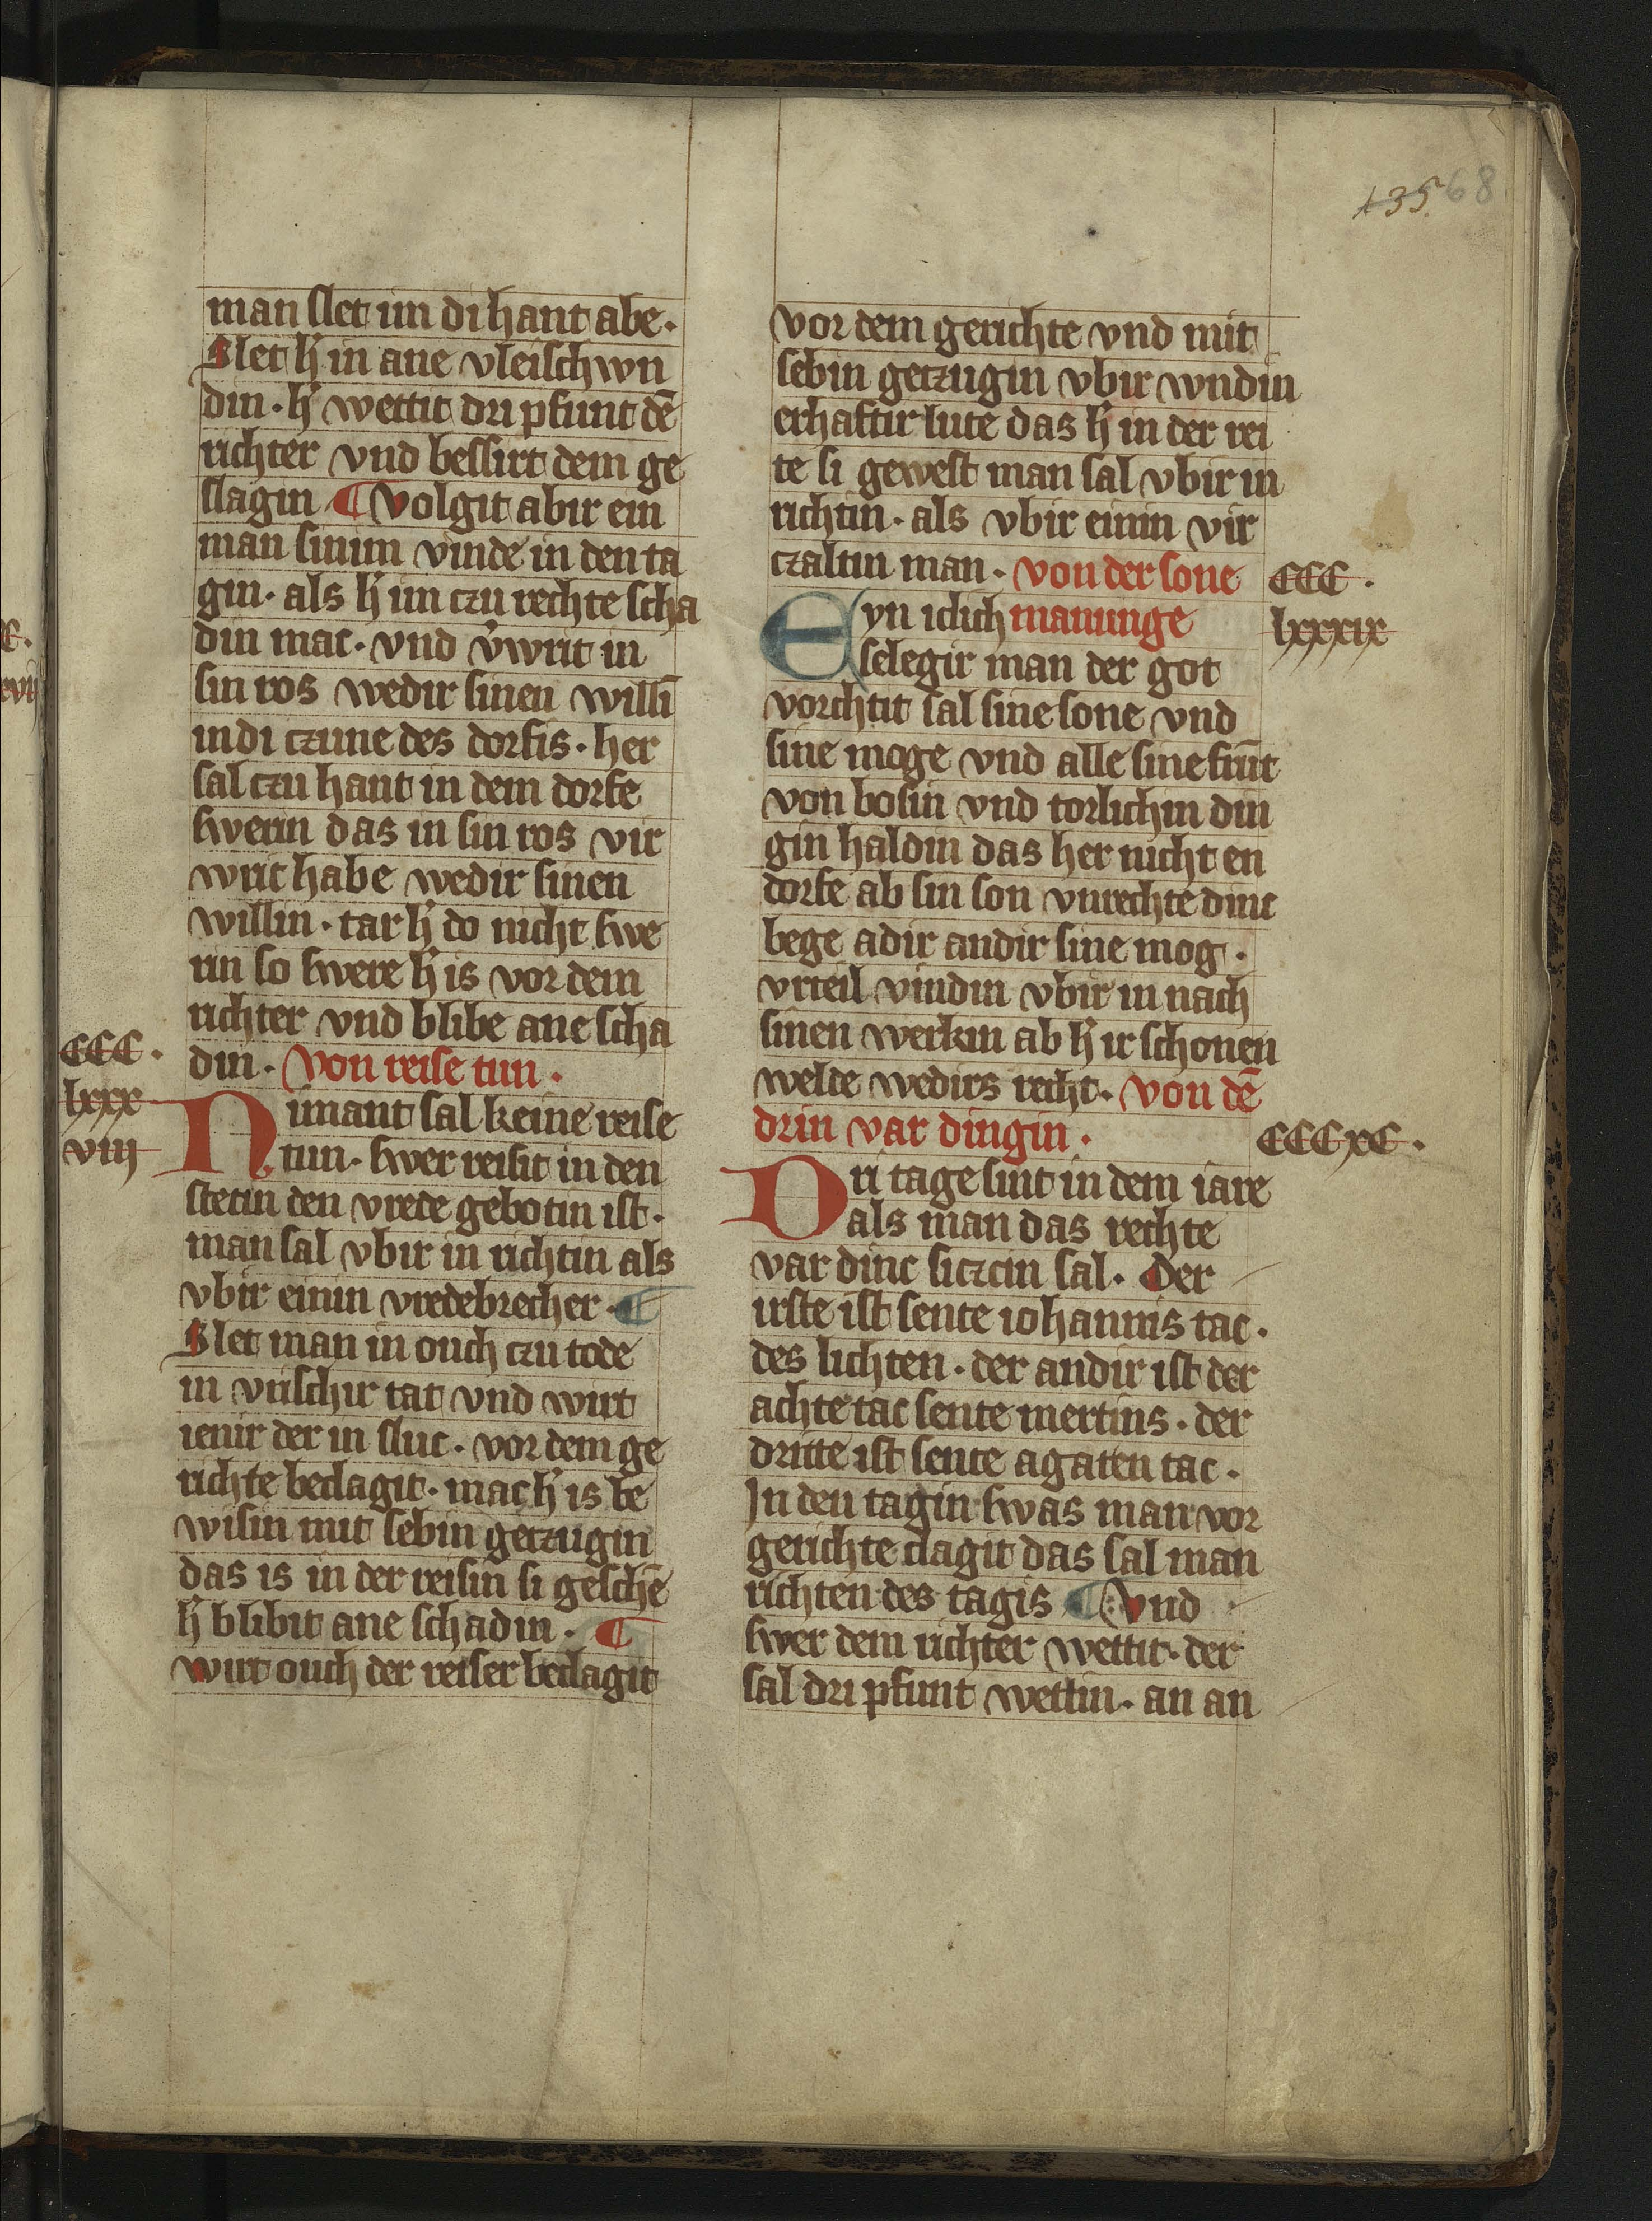 135. 68
man slet im di hant abe.
Slet h̓ in ane vleischwn
din. h̓ wettit dri pfunt dē
richter vnd bessirt dem ge
slagin ¶ volgit abir ein
man sinim vinde in den ta
gin. als h̓ im czu rechte scha
din mac. vnd v̓writ in
sin ros wedir sinen willī
in di czune des dorfis. her
sal czu hant in dem dorfe
swerin das in sin ros vir
writ habe wedir sinen
willin. tar h̓ do nicht swe
rin so swere h̓ is vor dem
richter vnd blibe ane scha
din. Von reise tun.
CCC.
lxxx
viij
Nimant sal keine reise
tun. swer reisit in den
stetin den vrede gebotin ist.
man sal vbir in richtin als
vbir einin vredebrecher. ¶
Slet man in ouch czu tode
in vrischir tat vnd wirt
ienir der in sluc. vor dem ge
richte beclagit. mac h̓ is be
wisin mit sebin getzugin
das is in der reisin si geschē
h̓ blibit ane schadin. ¶
wirt ouch der reiser beclagit
vor dem gerichte vnd mit
sebin getzugin vbir wndin
erhaftir lute das h̓ in der rei
te si gewest man sal vbir in
richtin. als vbir einin vir
czaltin man. von der sone
CCC.
lxxxix
Eyn iclich manunge
selegir man der got
vorchtit sal sine sone vnd
sine moge vnd alle sine frūt
von bosin vnd torlichin din
gin haldin das her nicht en
dorfe ab sin son vnrechte dinc
bege adir andir sine mog.
vrteil vindin vbir in nach
sinen werkin ab h̓ ir schonen
welde wedirs recht. von dē
drin var dingin.
CCCxC.
Dri tage sint in dem iare
als man das rechte
var dinc siczcin sal. Der
irste ist sente iohannis tac.
des lichten. der andir ist der
achte tac sente mertins. der
dritte ist sente agaten tac.
In den tagin swas man vor
gerichte clagit das sal man
richten des tagis ¶ vnd
swer dem richter wettit. der
sal dri pfunt wettin. an an